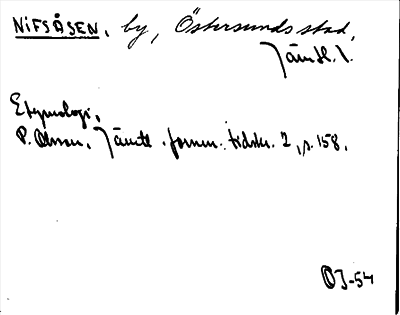 NIFSÅSEN, by, Östersunds stad,
Jämtl. l.
Etymologi,
P. Olsson, Jämtl. fornm. tidskr. 2, s. 158.
OJ-54